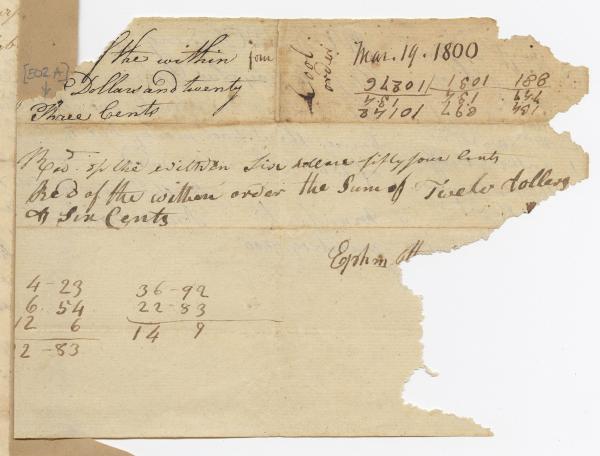 [502A]
f the within four
Dollars and twenty
Three Cents
order
Mar. 19. 1800
881 1031 10876
747 134 134
134 897 10142
Recd of the within Six dollars fifty four Cents
Recd of the within order the Sum of Twelve dollars
& Six Cents
Ephm Ott
4-23
6. 54
12 6
2-83
36-92
22-83
14 9